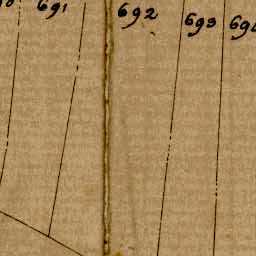 691
692
693